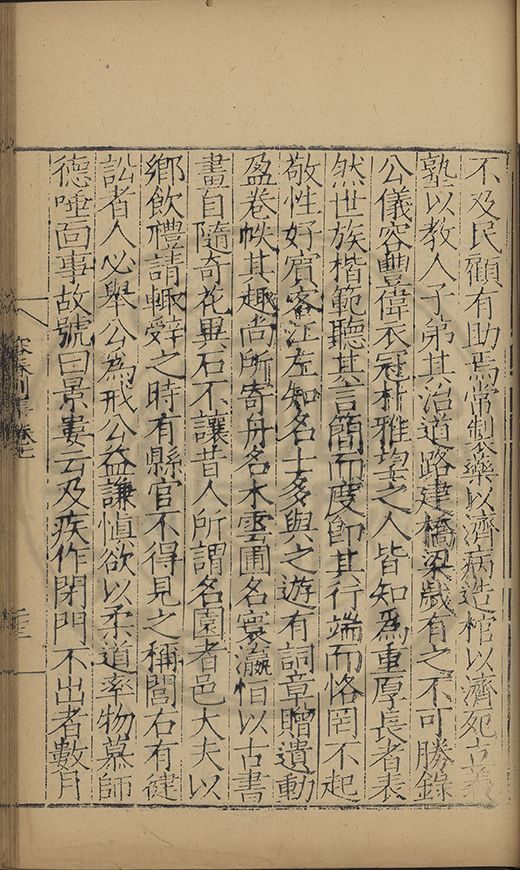 不及民顧有助焉常製藥以濟病造棺以濟死立義
塾以教人子弟其治道路建橋梁歲有之不可勝錄
公儀容豐偉衣冠析雅望之人皆知爲重厚長者表
然世族楷範聽其言簡而度卽其行端而恪罔不起
敬性好賓客江左知名士多與之遊有詞章贈遺動
盈卷帙其趣尚所寄舟名木雲圃名寰瀛怕以古書
畫自隨奇花異石不讓昔人所謂名園者邑大夫以
鄉飲禮請輙辤之時有縣官不得見之稱閭右有健
訟者人必舉公為戒公益謙慎欲以柔道率物慕師
德唾面事故號曰景婁云及疾作閉門不出者數月